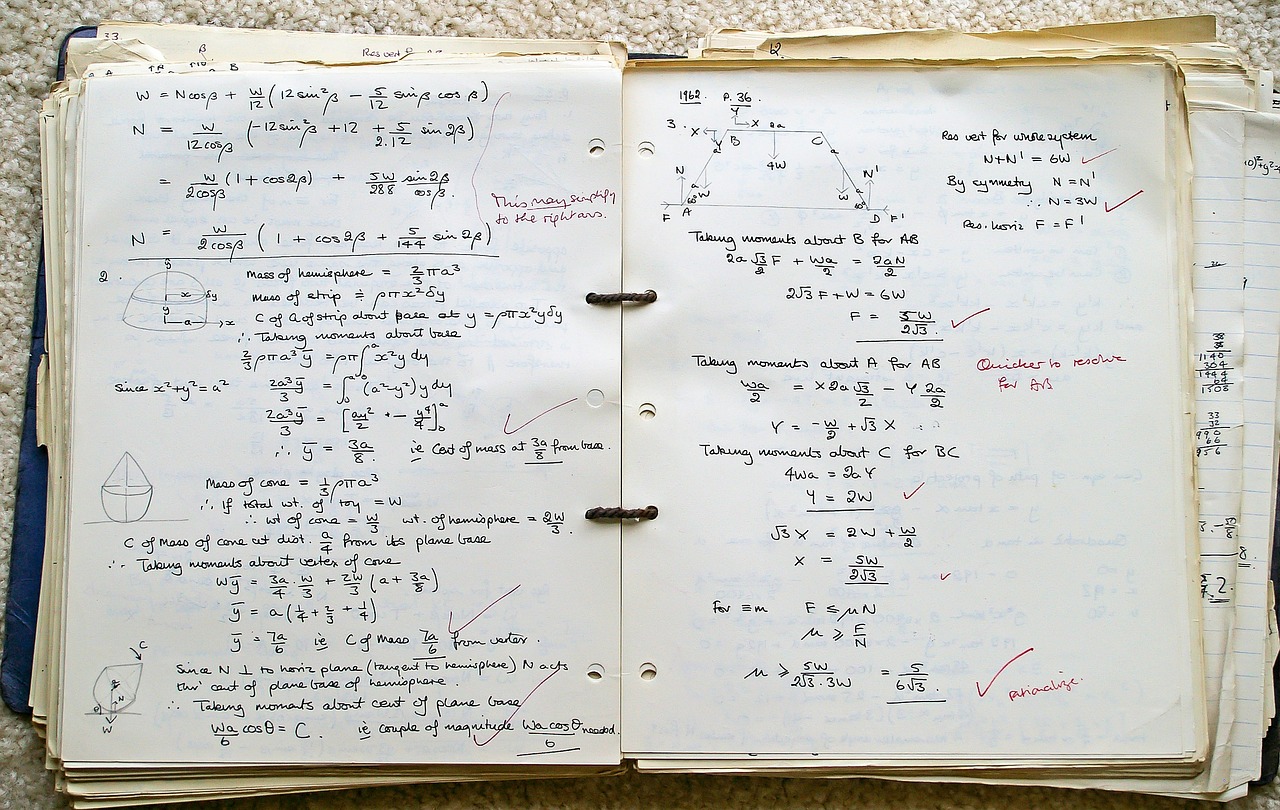 33.
β
Res vert
A B
W = Ncosβ + W/12 (12sin²β − 5/12 sinβ cosβ)
N = W/12cosβ (−12sin²β + 12 + 5/2.12 sin2β)
= W/2cosβ (1 + cos2β) + 5W/288 sin2β/cosβ.
This may simplify
to the right ans.
N = W/2cosβ (1 + cos2β + 5/144 sin2β)
2.
y
x δy
y
a x
Mass of hemisphere = 2/3 πa³
Mass of strip ≡ ρπx²δy
C of G of strip about base at y = ρπx²yδy
∴ Taking moments about base
2/3 ρπa³ȳ = ρπ∫₀ᵃ x²y dy
Since x²+y²=a² 2a³ȳ/3 = ∫₀ᵃ (a²−y²)y dy
2a³ȳ/3 = [ay²/2 − y⁴/4]₀ᵃ
∴ ȳ = 3a/8 ie Cent of mass at 3a/8 from base.
Mass of cone = 1/3 ρπa³
∴ If total wt. of toy = W
∴ wt of cone = W/3 wt. of hemisphere = 2W/3.
C of Mass of cone at dist. a/4 from its plane base
∴ Taking moments about vertex of cone
Wȳ = 3a/4 · W/3 + 2W/3 (a + 3a/8)
ȳ = a(1/4 + 2/3 + 1/4)
ȳ = 7a/6 ie C of Mass 7a/6 from vertex.
C
N
θ
W
Since N ⊥ to horiz plane (tangent to hemisphere) N acts
thro' cent of plane base of hemisphere.
∴ Taking moments about cent of plane base
Wa/6 cosθ = C. ie couple of magnitude Wa cosθ/6 needed.
1962. P. 36.
3. X Y X 2a
B C
a a
4W
N N'
a a
W W
60° 60°
F A D F'
Res vert for whole system
N+N' = 6W
By symmetry N = N'
∴ N = 3W
Res. horiz F = F'
Taking moments about B for AB
2a √3/2 F + Wa/2 = 2aN/2
2√3 F + W = 6W
F = 5W/2√3.
Taking moments about A for AB
Quicker to resolve
for AB
Wa/2 = X 2a √3/2 − Y 2a/2
Y = −W/2 + √3 X
Taking moments about C for BC
4Wa = 2aY
Y = 2W
√3 X = 2W + W/2
X = 5W/2√3
For ≡m F ≤ μN
μ ≥ F/N
μ ≥ 5W/2√3.3W = 5/6√3.
rationalize.
38
38
1140
304
1444
64
1508
33
32
990
66
956